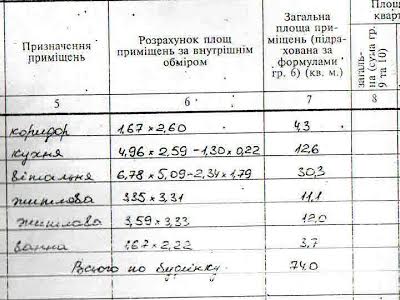 Призначення приміщень
Розрахунок площ приміщень за внутрішнім обміром
Загальна площа приміщень (підрахована за формулами гр. 6) (кв. м.)
Площ
кварт
загальна (сума гр. 9 та 10)
5 6 7 8
коридор 1,67 × 2,60 4,3
кухня 4,96 × 2,59 - 1,30 × 0,22 12,6
вітальня 6,78 × 5,09 - 2,34 × 1,79 30,3
житлова 335 × 3,31 11,1
житлова 3,59 × 3,33 12,0
ванна 1,67 × 2,22 3,7
Всього по будинку 74,0